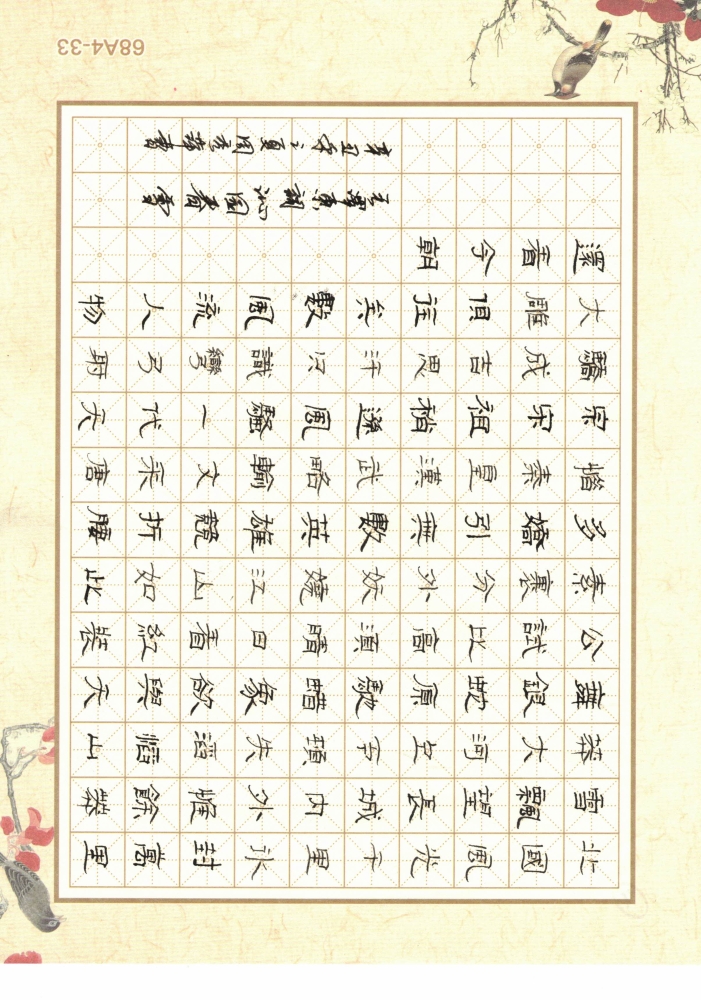 北國風光千里冰封萬里
雪飄望長城內外惟餘莽
莽大河上下頓失滔滔山
舞銀蛇原馳蜡象欲與天
公試比高須晴日看紅裝
素裹分外妖嬈江山如此
多嬌引無數英雄競折腰
惜秦皇漢武略輸文采唐
宗宋祖稍遜風騷一代天
驕成吉思汗只識彎弓射
大雕俱往矣數風流人物
還看今朝
毛澤東詞沁園春雪
辛丑年之夏書
68A4-33